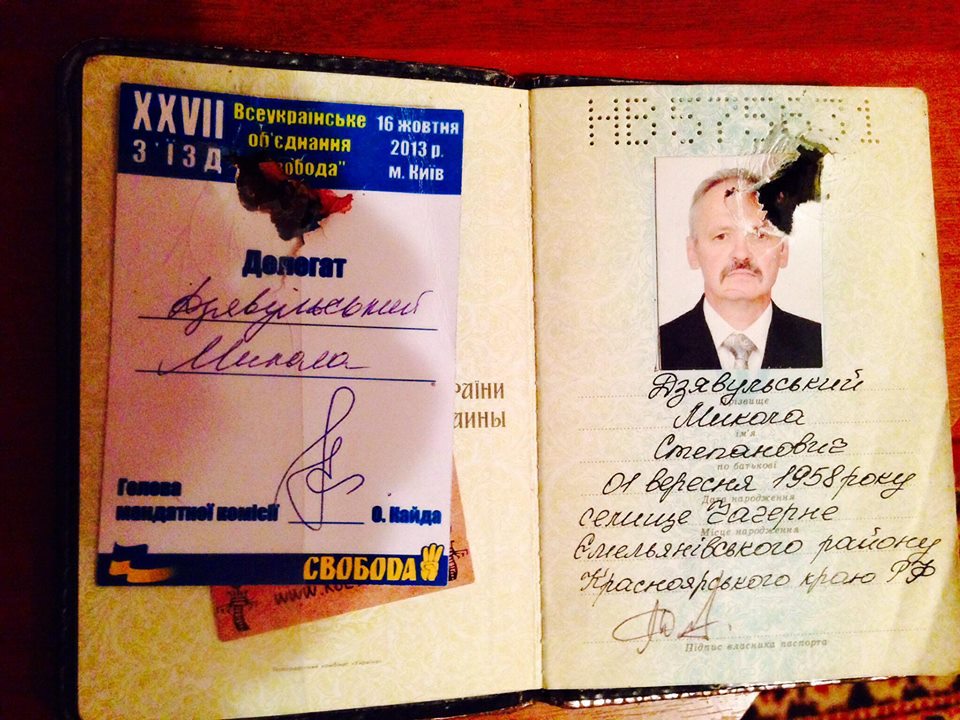 XXVII
З'ЇЗД
Всеукраїнське
об'єднання
16 жовтня
2013 р.
м. Київ
Делегат
Дзявульський
Микола
Голова
мандатної комісії О. Кайда
СВОБОДА
www.
раїни
аины
Дзявульський
Прізвище
Микола
ім'я
Степанович
по батькові
01 вересня 1958 року
Дата народження
селище Гагерне
Місце народження
Ємельянівського району
Красноярського краю РФ
Підпис власника паспорта